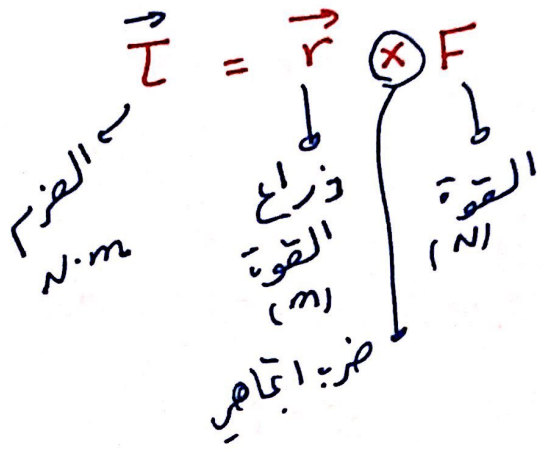 τ⃗ = r⃗ × F
العزم
N.m
ذراع
القوة
(m)
القوة
(N)
ضرب اتجاهي